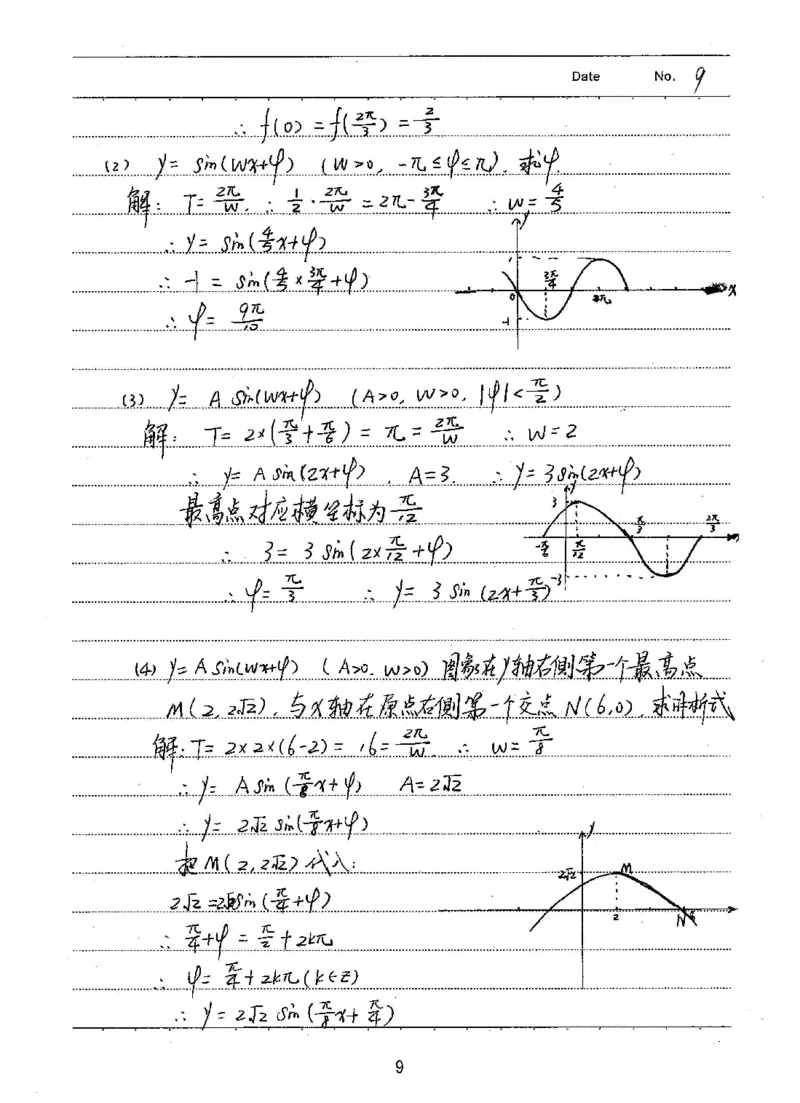 Date No. 9
∴ f(0) = f(2π/3) = 2/3
(2) y = sin(wx+φ) (w>0, -π≤φ≤π), 求φ.
解: T= 2π/w, ∴ 1/2 · 2π/w = 2π - 3π/4 ∴ w= 4/5
∴ y = sin(4/5 x+φ)
∴ -1 = sin(4/5 × 3π/4 + φ)
∴ φ= 9π/10
y
1
3π/4
0 2π x
-1
(3) y= A sin(wx+φ) (A>0, w>0, |φ|<π/2)
解: T= 2×(π/3 + π/6) = π = 2π/w ∴ w=2
∴ y= A sin(2x+φ), A=3. ∴ y=3sin(2x+φ)
最高点对应横坐标为 π/12
∴ 3= 3 sin(2×π/12 +φ)
∴ φ= π/3 ∴ y= 3 sin(2x+π/3)
y
3
π/3 2π/3
-π/6 π/12
-3
(4) y=A sin(wx+φ) (A>0, w>0) 图象在y轴右侧第一个最高点
M(2, 2√2), 与x轴在原点右侧第一个交点 N(6,0), 求解析式
解: T= 2×2×(6-2) = 16 = 2π/w ∴ w= π/8
∴ y= A sin(π/8 x+φ) A=2√2
∴ y= 2√2 sin(π/8 x+φ)
把 M(2, 2√2) 代入:
2√2 =2√2sin(π/4+φ)
∴ π/4+φ = π/2 + 2kπ
∴ φ= π/4 + 2kπ (k∈Z)
∴ y= 2√2 sin(π/8 x+ π/4)
y
2√2 M
2 N 6
9